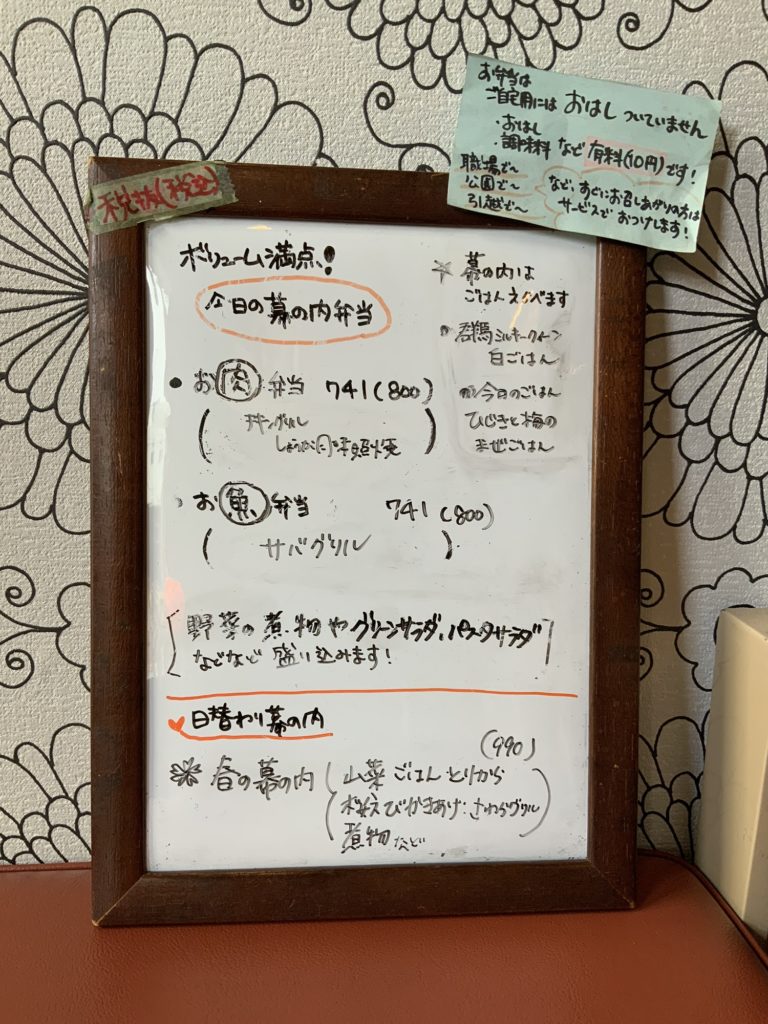 お弁当は
ご自宅用には おはし ついていません
・おはし
・調味料 など 有料(10円)です!
職場で〜
公園で〜
引越で〜
など、すぐにお召しあがりの方は
サービスで おつけします!
税抜(税込)
ボリューム満点、!
今日の幕の内弁当
・お肉弁当 741(800)
(チキングリル
しょうが 照焼)
・お魚弁当 741(800)
( サバグリル )
[野菜の煮物やグリーンサラダ、パスタサラダ
などなど 盛り込みます!]
☆ 幕の内は
ごはんえらべます
群馬ミルキークイーン
白ごはん
今日のごはん
ひじきと梅の
まぜごはん
♥日替わり幕の内
(990)
※ 春の幕の内 (山菜ごはん とりから
桜えびかきあげ・さわらグリル
煮物 など)